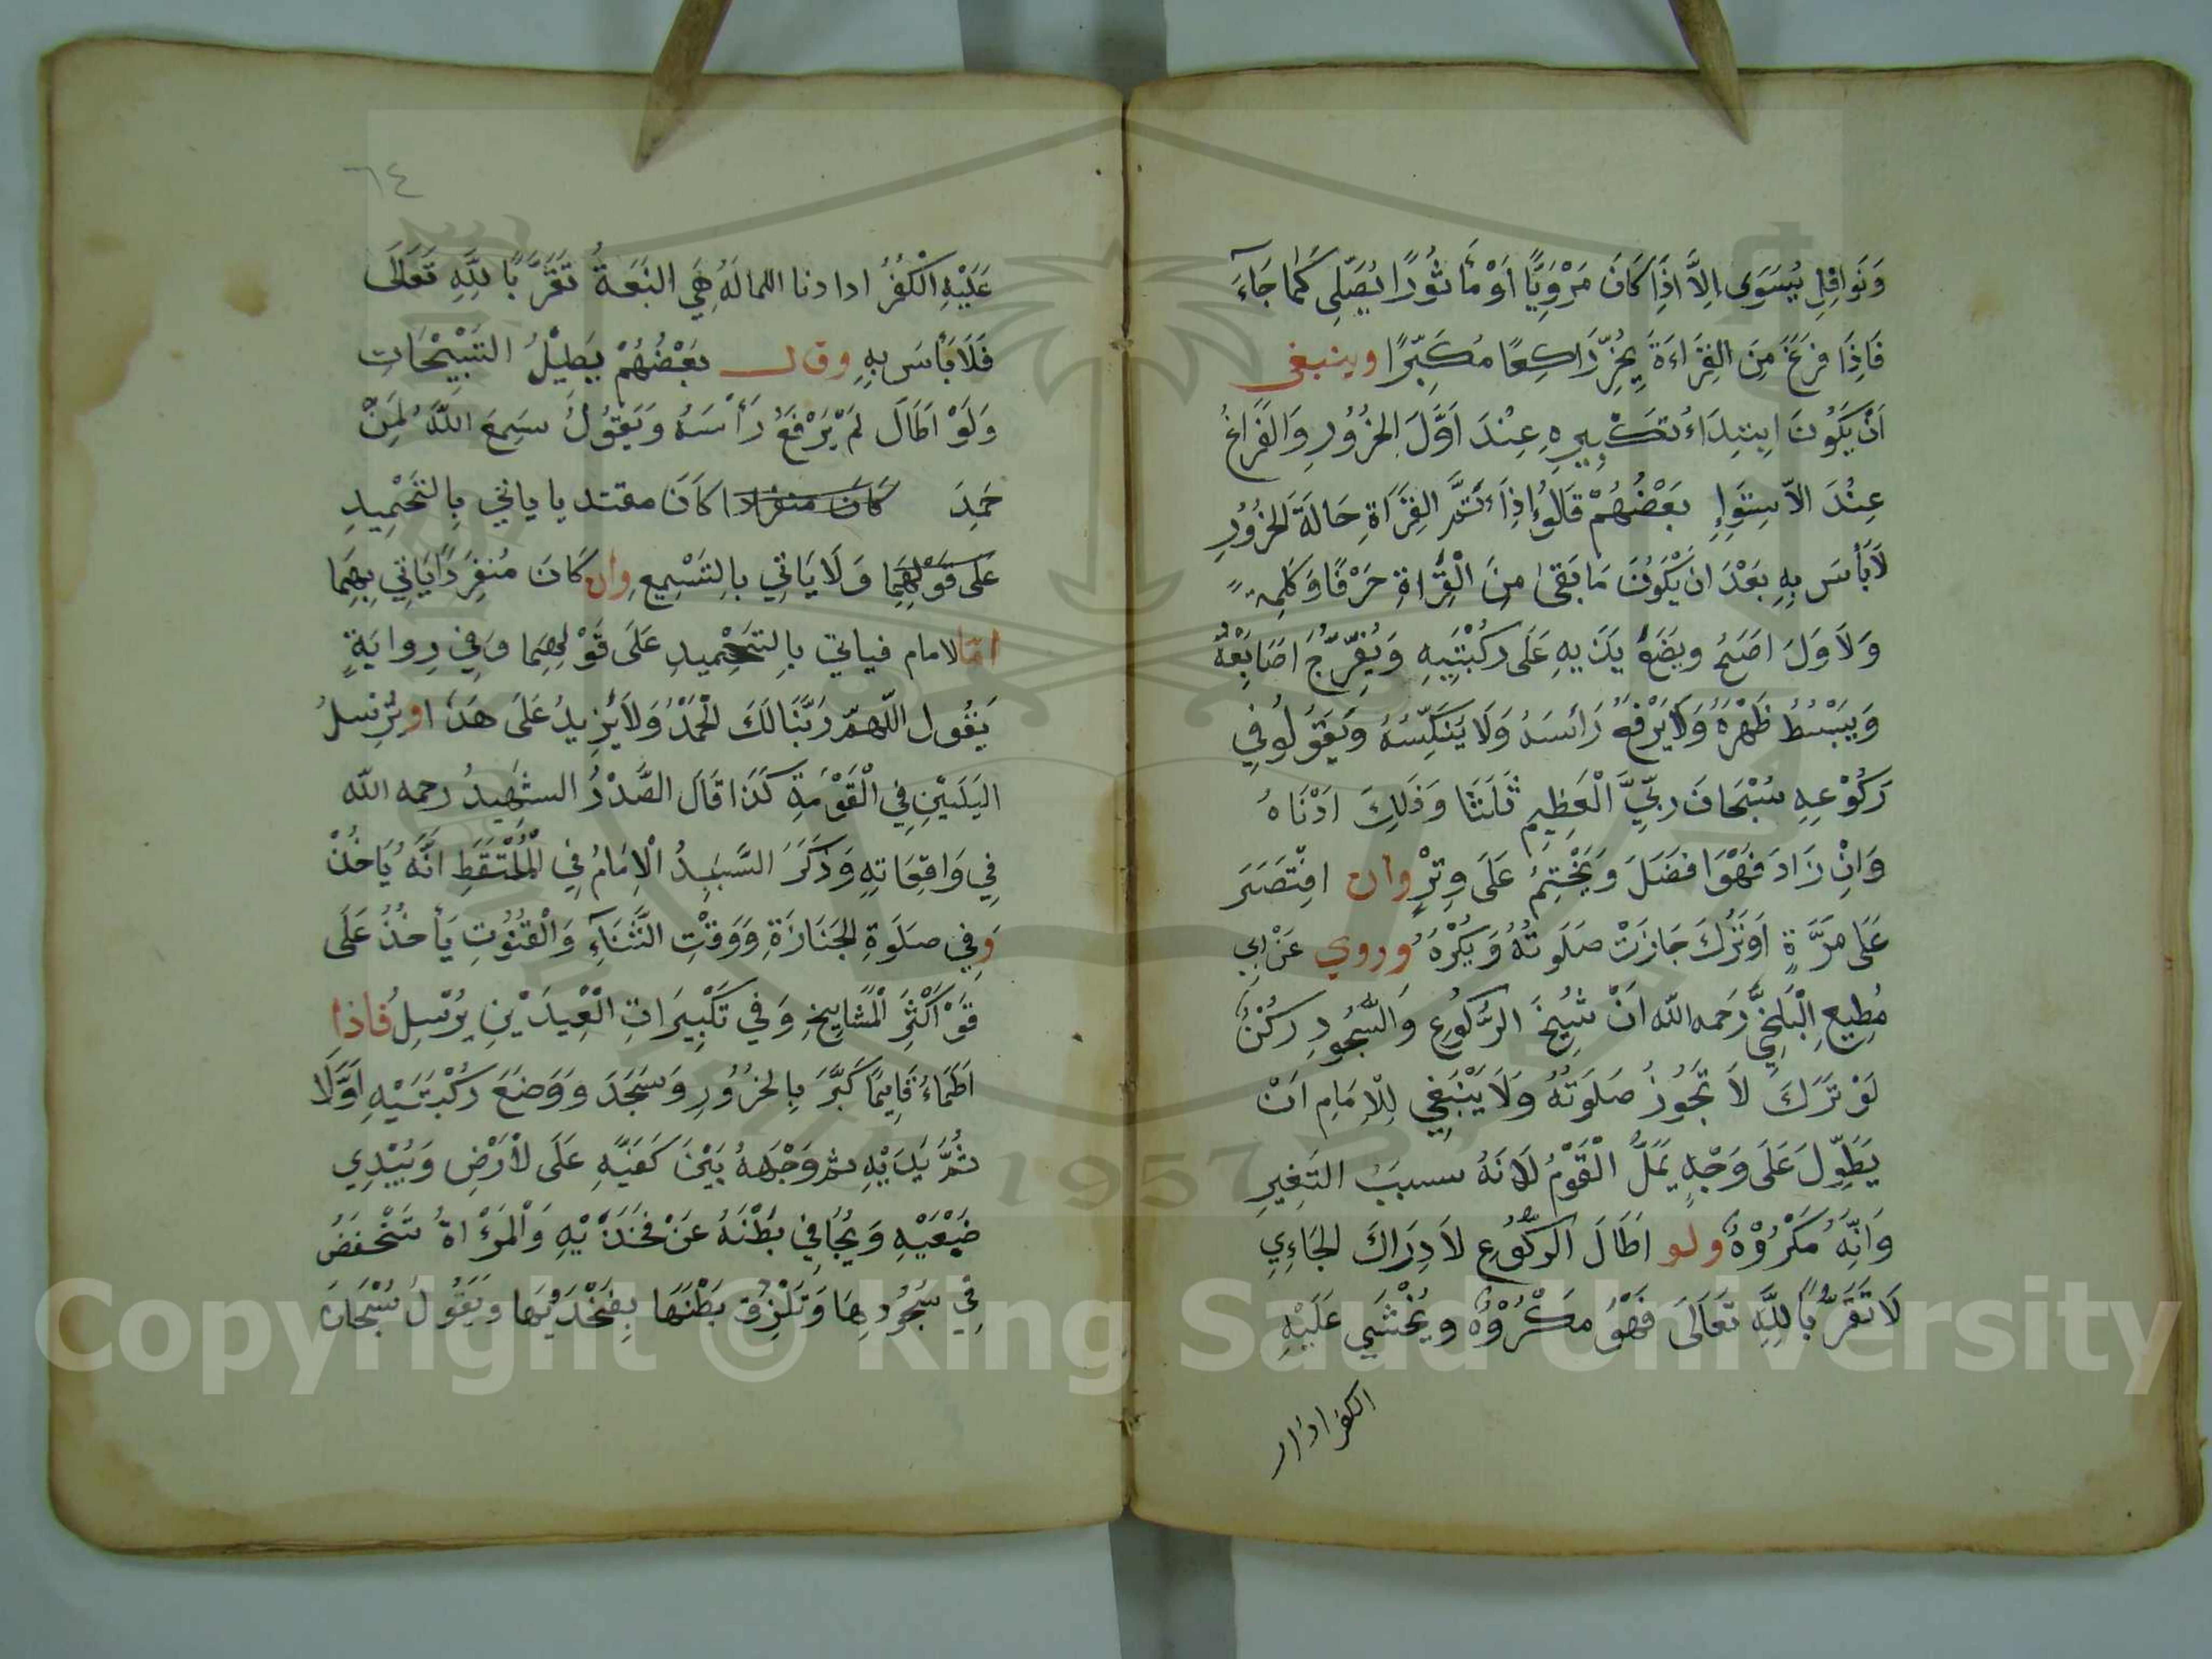 وَنَوَافِلِ يُسَوَى اِلاَّ اذَِا كَانَ مَرْوِيًّا اَوْ مَأثُورًا يُصَلِّي كَمَا جَاءَ
فَاِذَا فَرَغَ مِنَ القِرَاءَةَ يَخِرُّ رَاكِعًا مُكَبِّرًا وينبغى
اَنْ يَكُونَ ابتِدَاءُ تكَبِيرِهِ عِنْدَ اَوَّلَ الخرُورِ وَالفَرَاغُ
عِنْدَ الاّسِتِوَاءِ بَعْضُهُمْ قَالوُا اِذَا اَتَمَّ القِرَاةِ حَالَةَ الخرُورِ
لاَ بَأسَ بِهِ بَعْدَ انَ يَكوُنَ مَا بَقىَ مِنَ الْقِرَاةِ حَرْفًا وَكَلِمة
وَلاَوَلَ اصَحُ ويضَعُ يَدَيهِ عَلَى رُكْبَتَيهِ وَيُفَرِّجُ اَصَابِعَهُ
وَيبْسُطُ ظَهْرَهُ وَلَا يَرْفَعُ رَأسَهُ وَلَا يُنَكِّسُهُ وَيَقوُلُ في
رَكُوْعِهِ سُبْحَانَ ربّيَ الْعَظِيمِ ثَلَثَا وَذَلِكَ ادْنَاهُ
وَانِْ زَادَ فَهُوَ افضَلَ وَيَخْتِمُ عَلَى وِتْرٍ وان اقتَصَرَ
عَلَى مَرَّةٍ اَوتَرَكَ جَازَتْ صَلَوتُهُ وَيُكْرَهُ وروي عَنْ ابِي
مُطِيعِ الْبَلَخِيِّ رَحمه الله انَّ تَسْبِيحَ الرُّكُوعِ وَالسُّجُودِ رُكْنٌ
لَوْ تَرَكَ لاَ تَجُوزُ صَلَوَتُهُ وَلاَ يَنْبَغِي لِلاِمَامِ اَنْ
يَطَوِّلَ عَلَى وَجْهٍ يَمَلُّ الْقَوْمُ لاَنَهُ سببَ التَغِيرِ
وَانِّهُ مَكْرُوْهٌ ولو اطَالَ الركُوعِ لاَدِرَاكَ الجَاءِي
لَا تَقَرُّبًا لِلَّهِ تَعَالَى فَهْوُ مكْرُوْهٌ ويُخْشَي عَلَيْهِ
الكفر اذا ار
٦٤
عَلَيْهِ الْكُفْرُ ادا دنا اللمالَهُ هِيَ النبَعَةُ تَقَرُّبًا لِلَّهِ تَعَالَى
فَلَا بَأسَ بهِ وقال بَعْضُهُمْ يَطِيلُ التَسْبِيْحَاتِ
وَلَوْ اطَالَ لمَ يَرْفَعُ رَأسَهُ وَيَقوُلُ سَمِعَ اللَّهُ لمَنِْ
حَمِدَ كَانَ منفردا كَانَ مقتديا ياتي بِالتحْمِيدِ
عَلَى قَوْلهِمَا وَلَا يَاتِي بالِتسْمِيعِ وان كَانَ مُنفَرِدًا يَاتِي بِهَِما
امّا لامام فياتي بِالتحْمِيدِ عَلَى قَوْلهِمَا وَفي رِوايَةٍ
يَقُول اللّهمّ رَبّنَا لَكَ الحْمَدُْ وَلاَ يَزِيدُ عَلَى هَذَا ويُرسِلُ
اليَدَيْنِ فِي الْقَوْمَةِ كَذَا قَالَ الصَّدْرُ الشَهِيدُ رحمه الله
فِي وَاقِعَاتِهِ وَذَكَرَ السَّيدُ الْاِمَامُ فِي الْمُلْتَقَطِ انَّهُ يَاخُذْ
وَفي صلَوةِ الجَنَازَةِ وَوَقْتِ الثَّنَاءِ وَالْقنُوُتِ يَأخُذُ عَلَى
قَوْ اَكْثَرِ الْمشَايِيخِ وَفي تَكْبِيرَاتِ الْعِيدَيْنِ يُرْسِلُ فاذا
اطَمَاءَ قَايِمًا كَبَّرَ بِالخرُوُرِ وَسَجَدَ وَوَضَعَ رُكْبَتَيْهِ اَوَّلَا
ثُمَّ يَدَيْهِ ثم وَجْهَهُ بَيْنَ كَفَيّهِ عَلَى لْأرَْضِ وَيُبْدِي
ضَبْعَيْهِ وَيُجَافي بَطْنَهُ عَنْ فَخَذَيْهِ وَالْمَرْاةُ تَنْخفضُ
فِي سُجُودِهَا وَتَلْزِقُ بَطْنَهَا بِفخْذَيْهَا وَيَقُولُ سُبْحَانَ
1957
Copyright © King Saud University